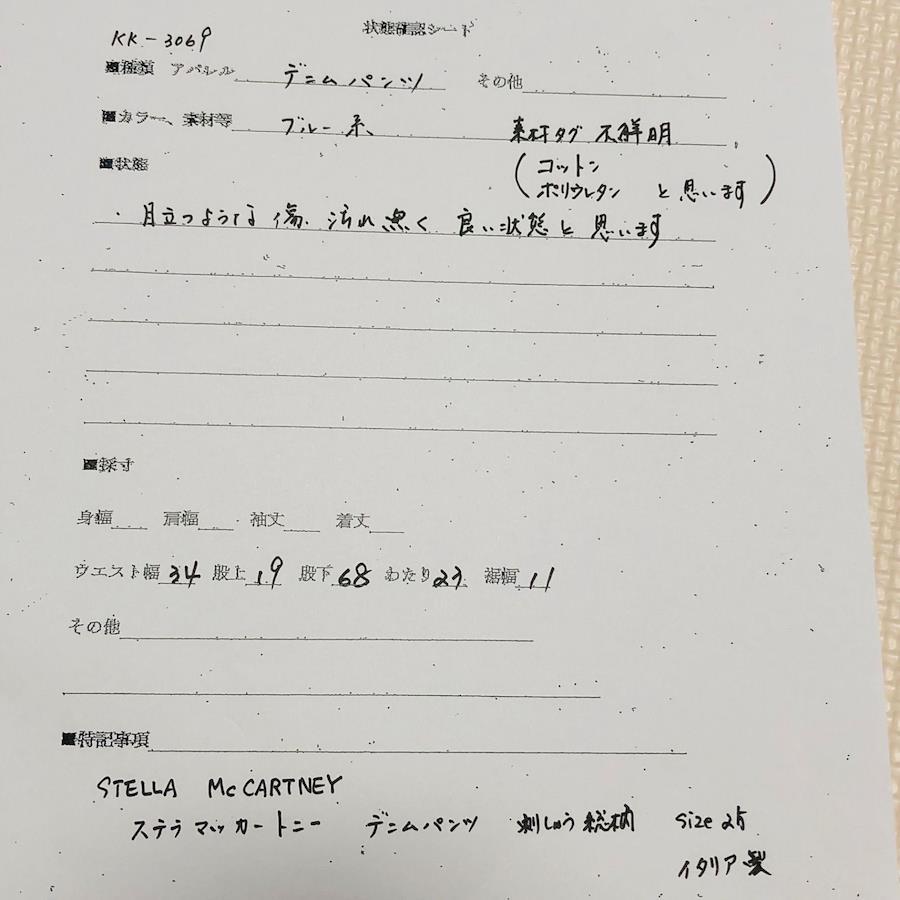 状態確認シート
KK-3069
■種類 アパレル デニムパンツ その他
■カラー、素材等 ブルー系、 素材タグ不鮮明
(コットン
ポリウレタン と思います)
■状態
・目立つような傷、汚れ無く 良い状態と思います
■採寸
身幅 肩幅 袖丈 着丈
ウエスト幅 34 股上 19 股下 68 わたり 23 裾幅 11
その他
■特記事項
STELLA McCARTNEY
ステラマッカートニー デニムパンツ 刺しゅう総柄 size 25
イタリア製